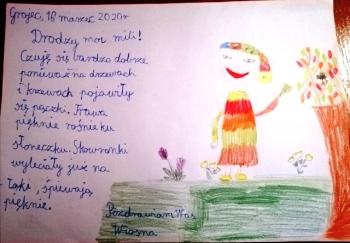 Grojec, 16 marzec 2020r
Drodzy moi mili!
Czuję się bardzo dobrze
ponieważ na drzewach
i krzewach pojawiły
się pączki. Trawa
pięknie rośnie ku
słoneczku. Skowronki
wyleciały już na
łąki, śpiewają
pięknie.
Pozdrawiam Was
Wiosna